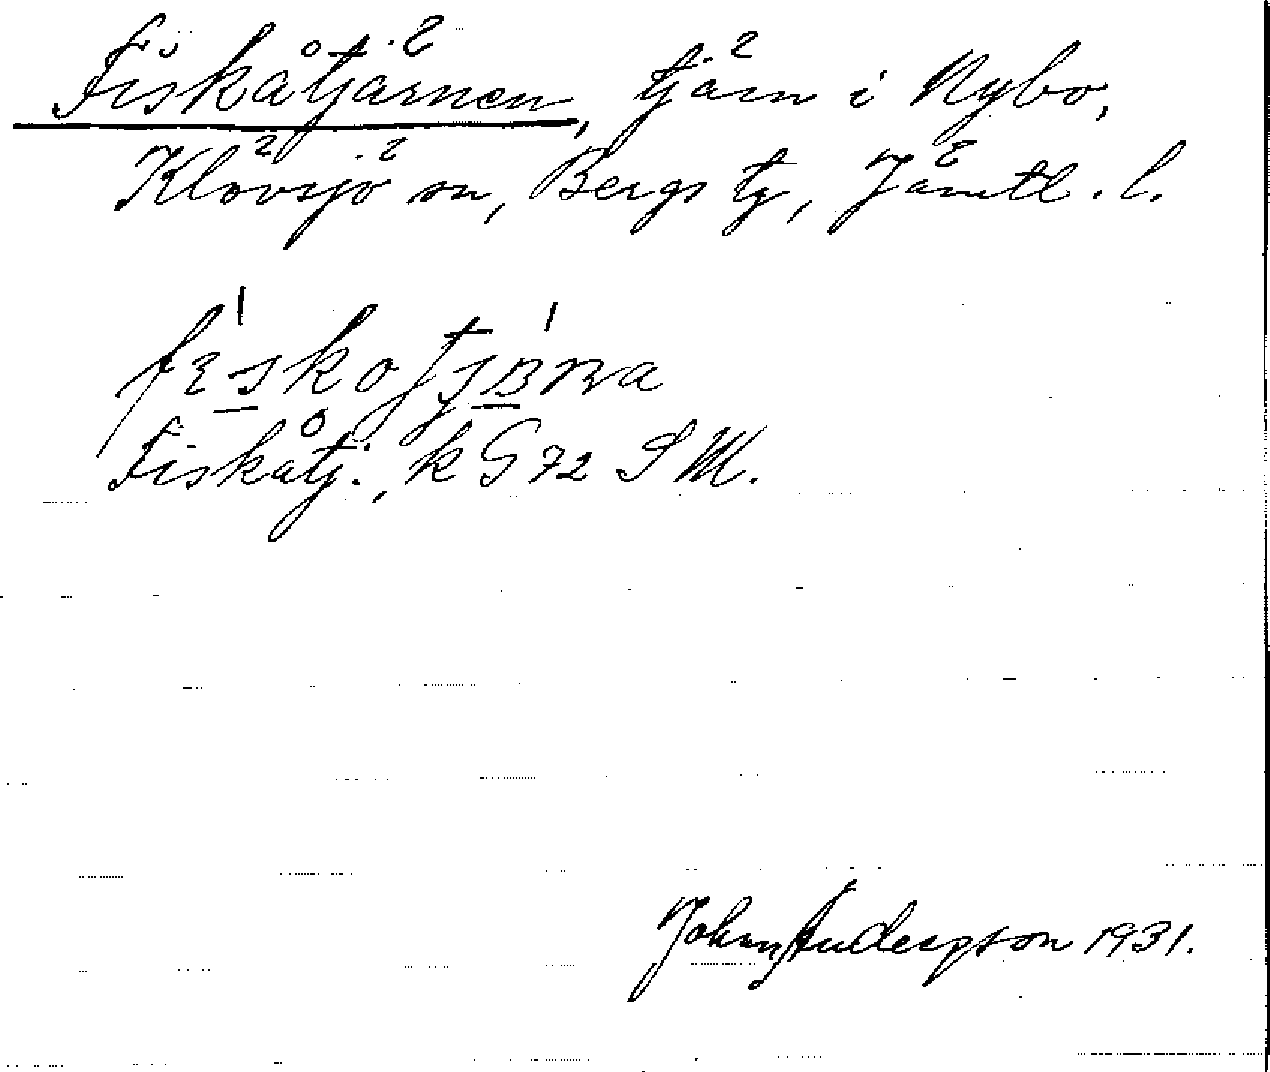 Fiskåtjärnen, tjärn i Nybo,
Klövsjö sn, Bergs tg, Jämtl. l.
Fiskåtj., k G 72 S M.
John Andersson 1931.